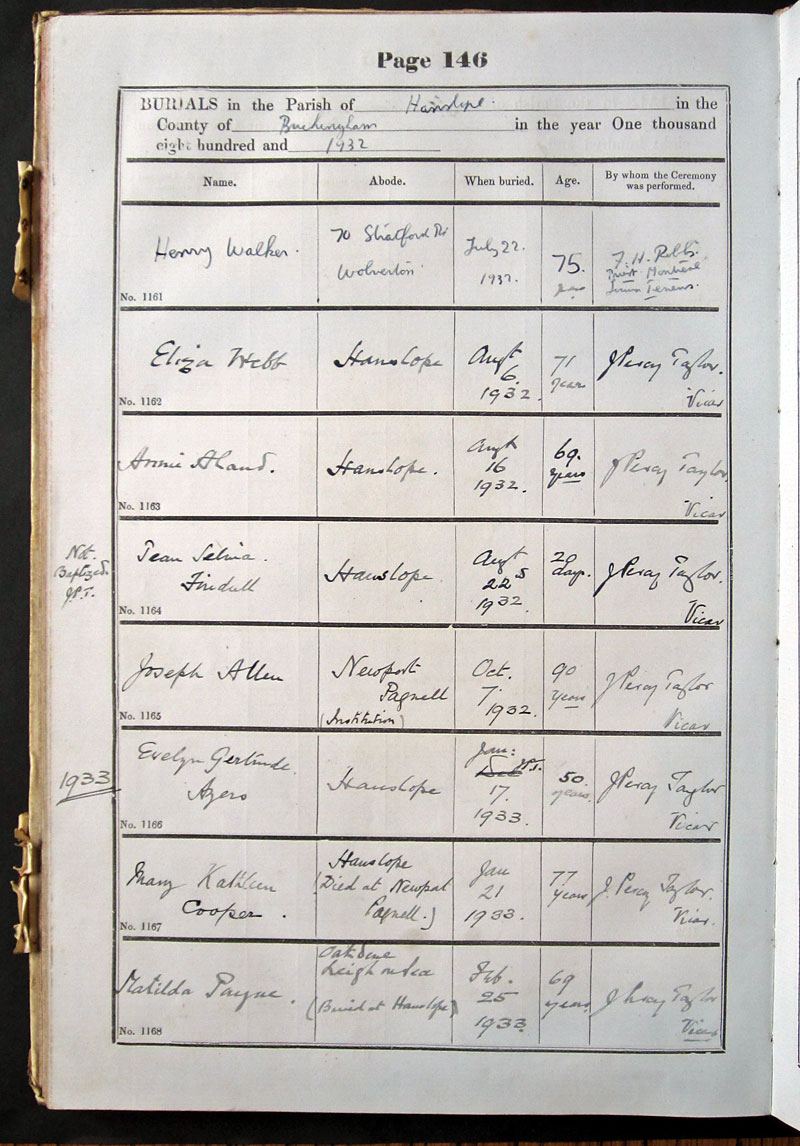 Page 146
BURIALS in the Parish of Hanslope. in the
County of Buckingham in the year One thousand
eight hundred and 1932
Name. Abode. When buried. Age. By whom the Ceremony was performed.
Henry Walker.
70 Stratford Rd
Wolverton
July 22.
1932.
75.
years
F. H.
Priest
No. 1161
Eliza Webb
Hanslope
Augt
6.
1932.
71
years
J Percy Taylor.
Vicar
No. 1162
Annie
Hanslope.
Augt
16
1932.
69.
years
J Percy Taylor
Vicar
No. 1163
Not
Baptized.
J.P.T.
Jean Selina.
Hanslope.
Augt
22
1932.
20
days.
J Percy Taylor.
Vicar
No. 1164
Joseph Allen
Newport
Pagnell
(Institution)
Oct.
7.
1932.
90
years
J Percy Taylor
Vicar
No. 1165
1933
Evelyn Gertrude
Ayers
Hanslope
Jan:
Dec J.P.T.
17.
1933.
50.
years.
J Percy Taylor
Vicar
No. 1166
Mary Kathleen
Cooper.
Hanslope
(Died at Newport
Pagnell.)
Jan
21
1933.
77
years
J. Percy Taylor.
Vicar.
No. 1167
Matilda Payne.
Leigh on Sea
(Buried at Hanslope)
Feb.
25
1933.
69
years.
J Percy Taylor
Vicar
No. 1168